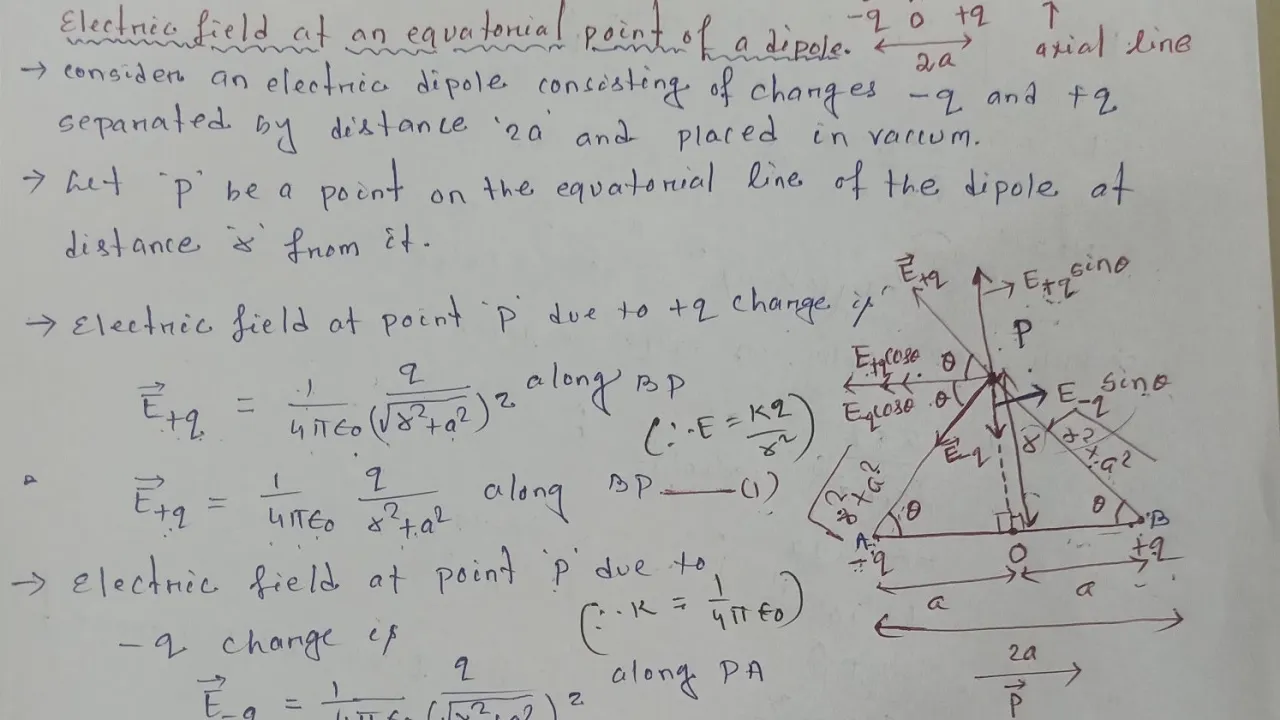 -q O +q ↑
Electric field at an equatorial point of a dipole. 2a axial line
→ consider an electric dipole consisting of charges -q and +q
separated by distance '2a' and placed in vaccum.
→ Let 'p' be a point on the equatorial line of the dipole at
distance 'r' from it.
→ Electric field at point 'p' due to +q charge is
E⃗+q = 1/4πε0 q/(√r²+a²)² along BP
(∵ E = Kq/r²)
E⃗+q = 1/4πε0 q/r²+a² along BP —— (1)
→ Electric field at point 'p' due to
-q charge is
(∵ K = 1/4πε0)
E⃗-q = 1/4πε0 q/(√r²+a²)² along PA
E⃗+q
E+q sinθ
P
E+q cosθ θ
Eq cosθ θ
E-q sinθ
E⃗-q
r
θ θ
A B
-q O +q
a a
2a
P⃗